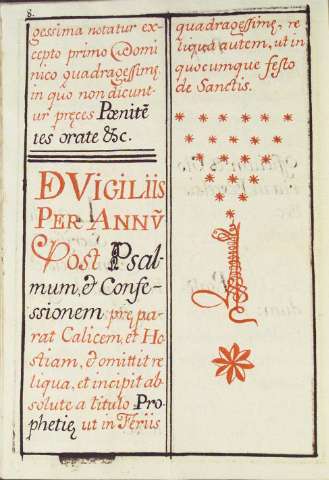 8.
gessima notatur ex-
cepto primo Domi
nico quadragessimę
in quo non dicunt-
ur pręces Pœnitē
tes orate &c.
D VIGILIIS
PER ANNṼ
Post Psal-
mum, & Confe-
ssionem prępa-
rat Calicem, et Ho
stiam, & omittit re
liqua, et incipit ab
solute a titulo Pro-
phetię, ut in Feriis
quadragessimę, re
liqua autem, ut in
quocumque festo
de Sanctis.